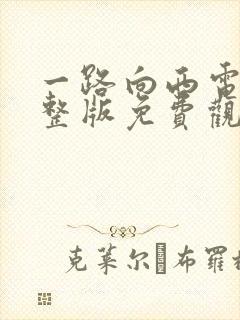 一路向西電
整版免費觀
克莱尔 布羅